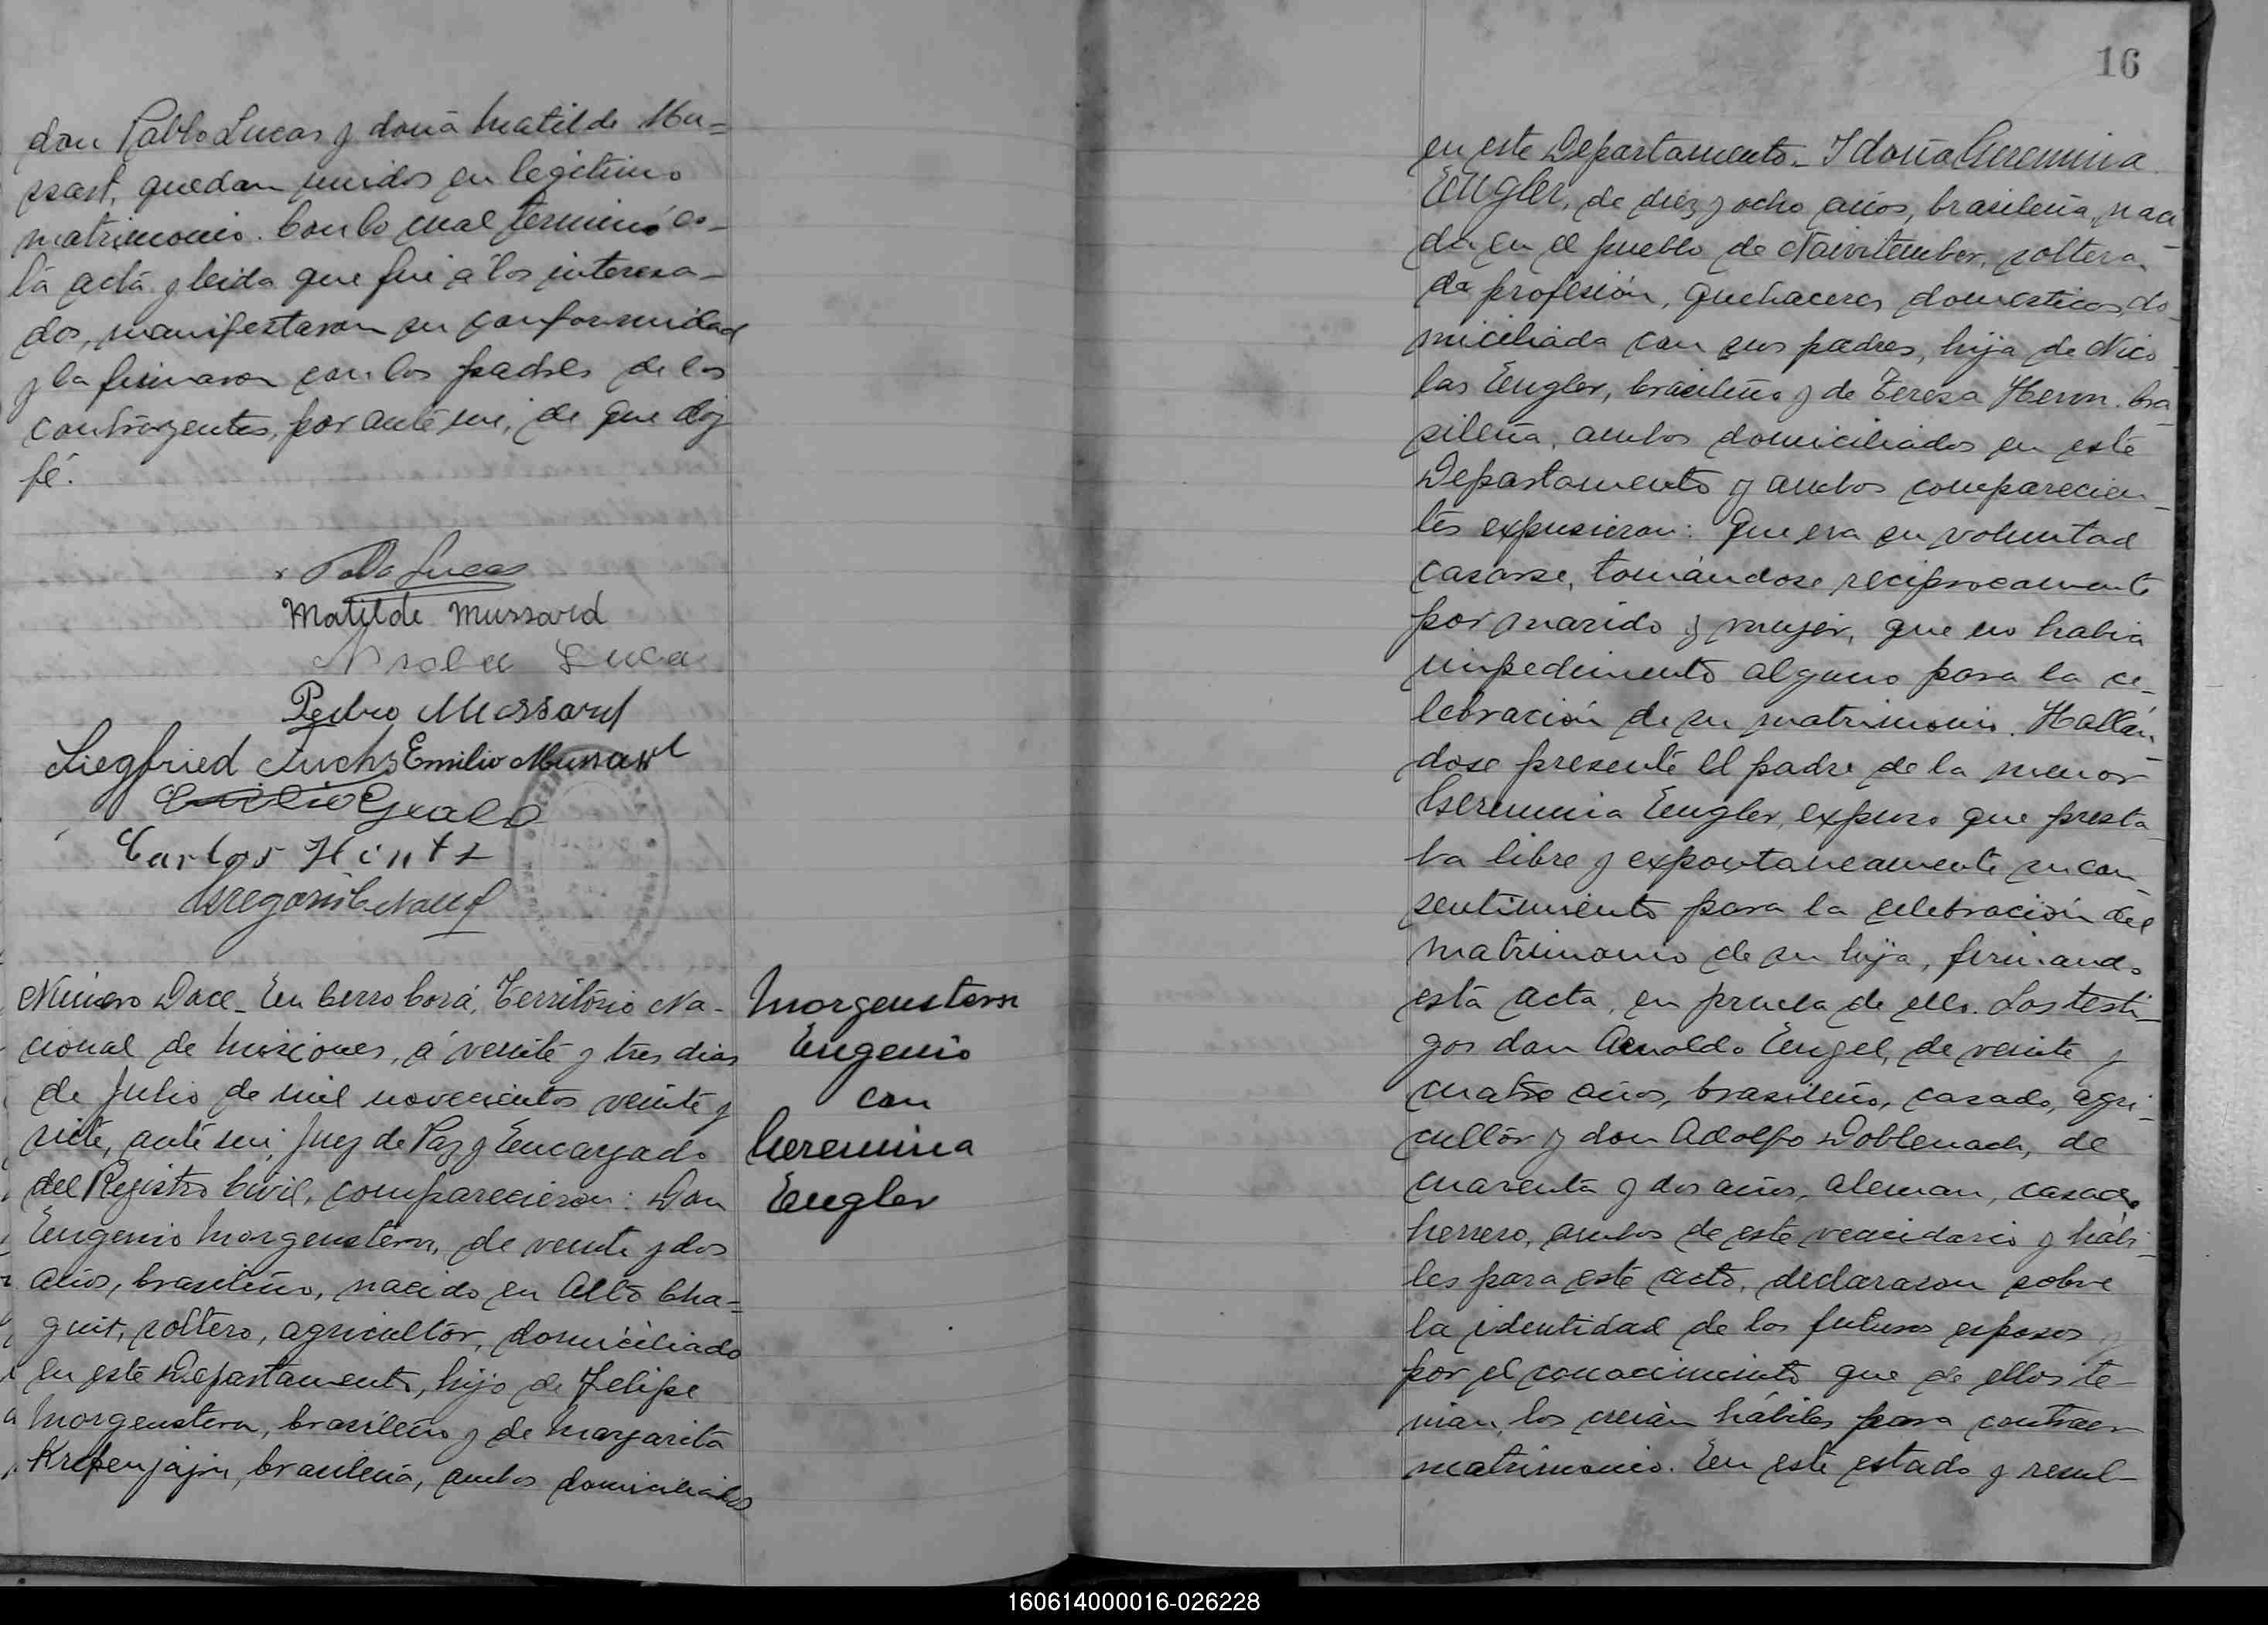 don Pablo Lucas y doña Matilde Mu=
ssart, quedan unidos en legitimo
matrimonio. Con lo cual terminó es-
ta acta y leida que fué a los interesa-
dos, manifestaron su conformidad
y la firmaron con los padres de los
contrayentes, por ante mi, de que doy
fé.
Pablo Lucas
Matilde Mussard
Luca
Pedro Mussart
Siegfried Fuchs Emilio Mussart
Carlos Hintz
Número Doce_ En Cerro Corá, Territorio Na-
cional de Misiones, á veinte y tres dias
de Julio de mil novecientos veinte y
siete, ante mi, Juez de Paz y Encargado
del Registro Civil, comparecieron: Don
Eugenio Morgenstern, de veinte y dos
años, brasileño, nacido en Alto Cha=
guit, soltero, agricultor, domiciliado
en este Departamento, hijo de Felipe
Morgenstern, brasileño y de Margarita
brasileña, ambos domiciliados
Morgenstern
Eugenio
con
Geremina
Engler
16
en este Departamento_ Y doña Geremina
Engler, de diez y ocho años, brasileña, naci
da en el pueblo de soltera,
de profesión, quehaceres domesticos, do
miciliada con sus padres, hija de Nico
las Engler, brasileño y de Teresa Henn. bra
sileña, ambos domiciliados en este
Departamento y ambos comparecien_
tes expusieron: Que era su voluntad
casarse, tomándose reciprocamente
por marido y mujer, que no habia
impedimento alguno para la ce_
lebración de su matrimonio. Hallán_
dose presente el padre de la menor
Geremina Engler, expuso que presta
ba libre y expontaneamente su con_
sentimiento para la celebración del
matrimonio de su hija, firmando
esta acta, en prueba de ello. Los testi_
gos don Arnoldo Engel, de veinte y
cuatro años, brasileño, casado, agri_
cultor y don Adolfo Doblenach, de
cuarenta y dos años, aleman, casado
herrero, ambos de este vecindario y hábi_
les para este acto, declararon sobre
la identidad de los futuros esposos y
por el conocimiento que de ellos te_
nian, los creian hábiles para contraer
matrimonio. En este estado y resul_
160614000016-026228